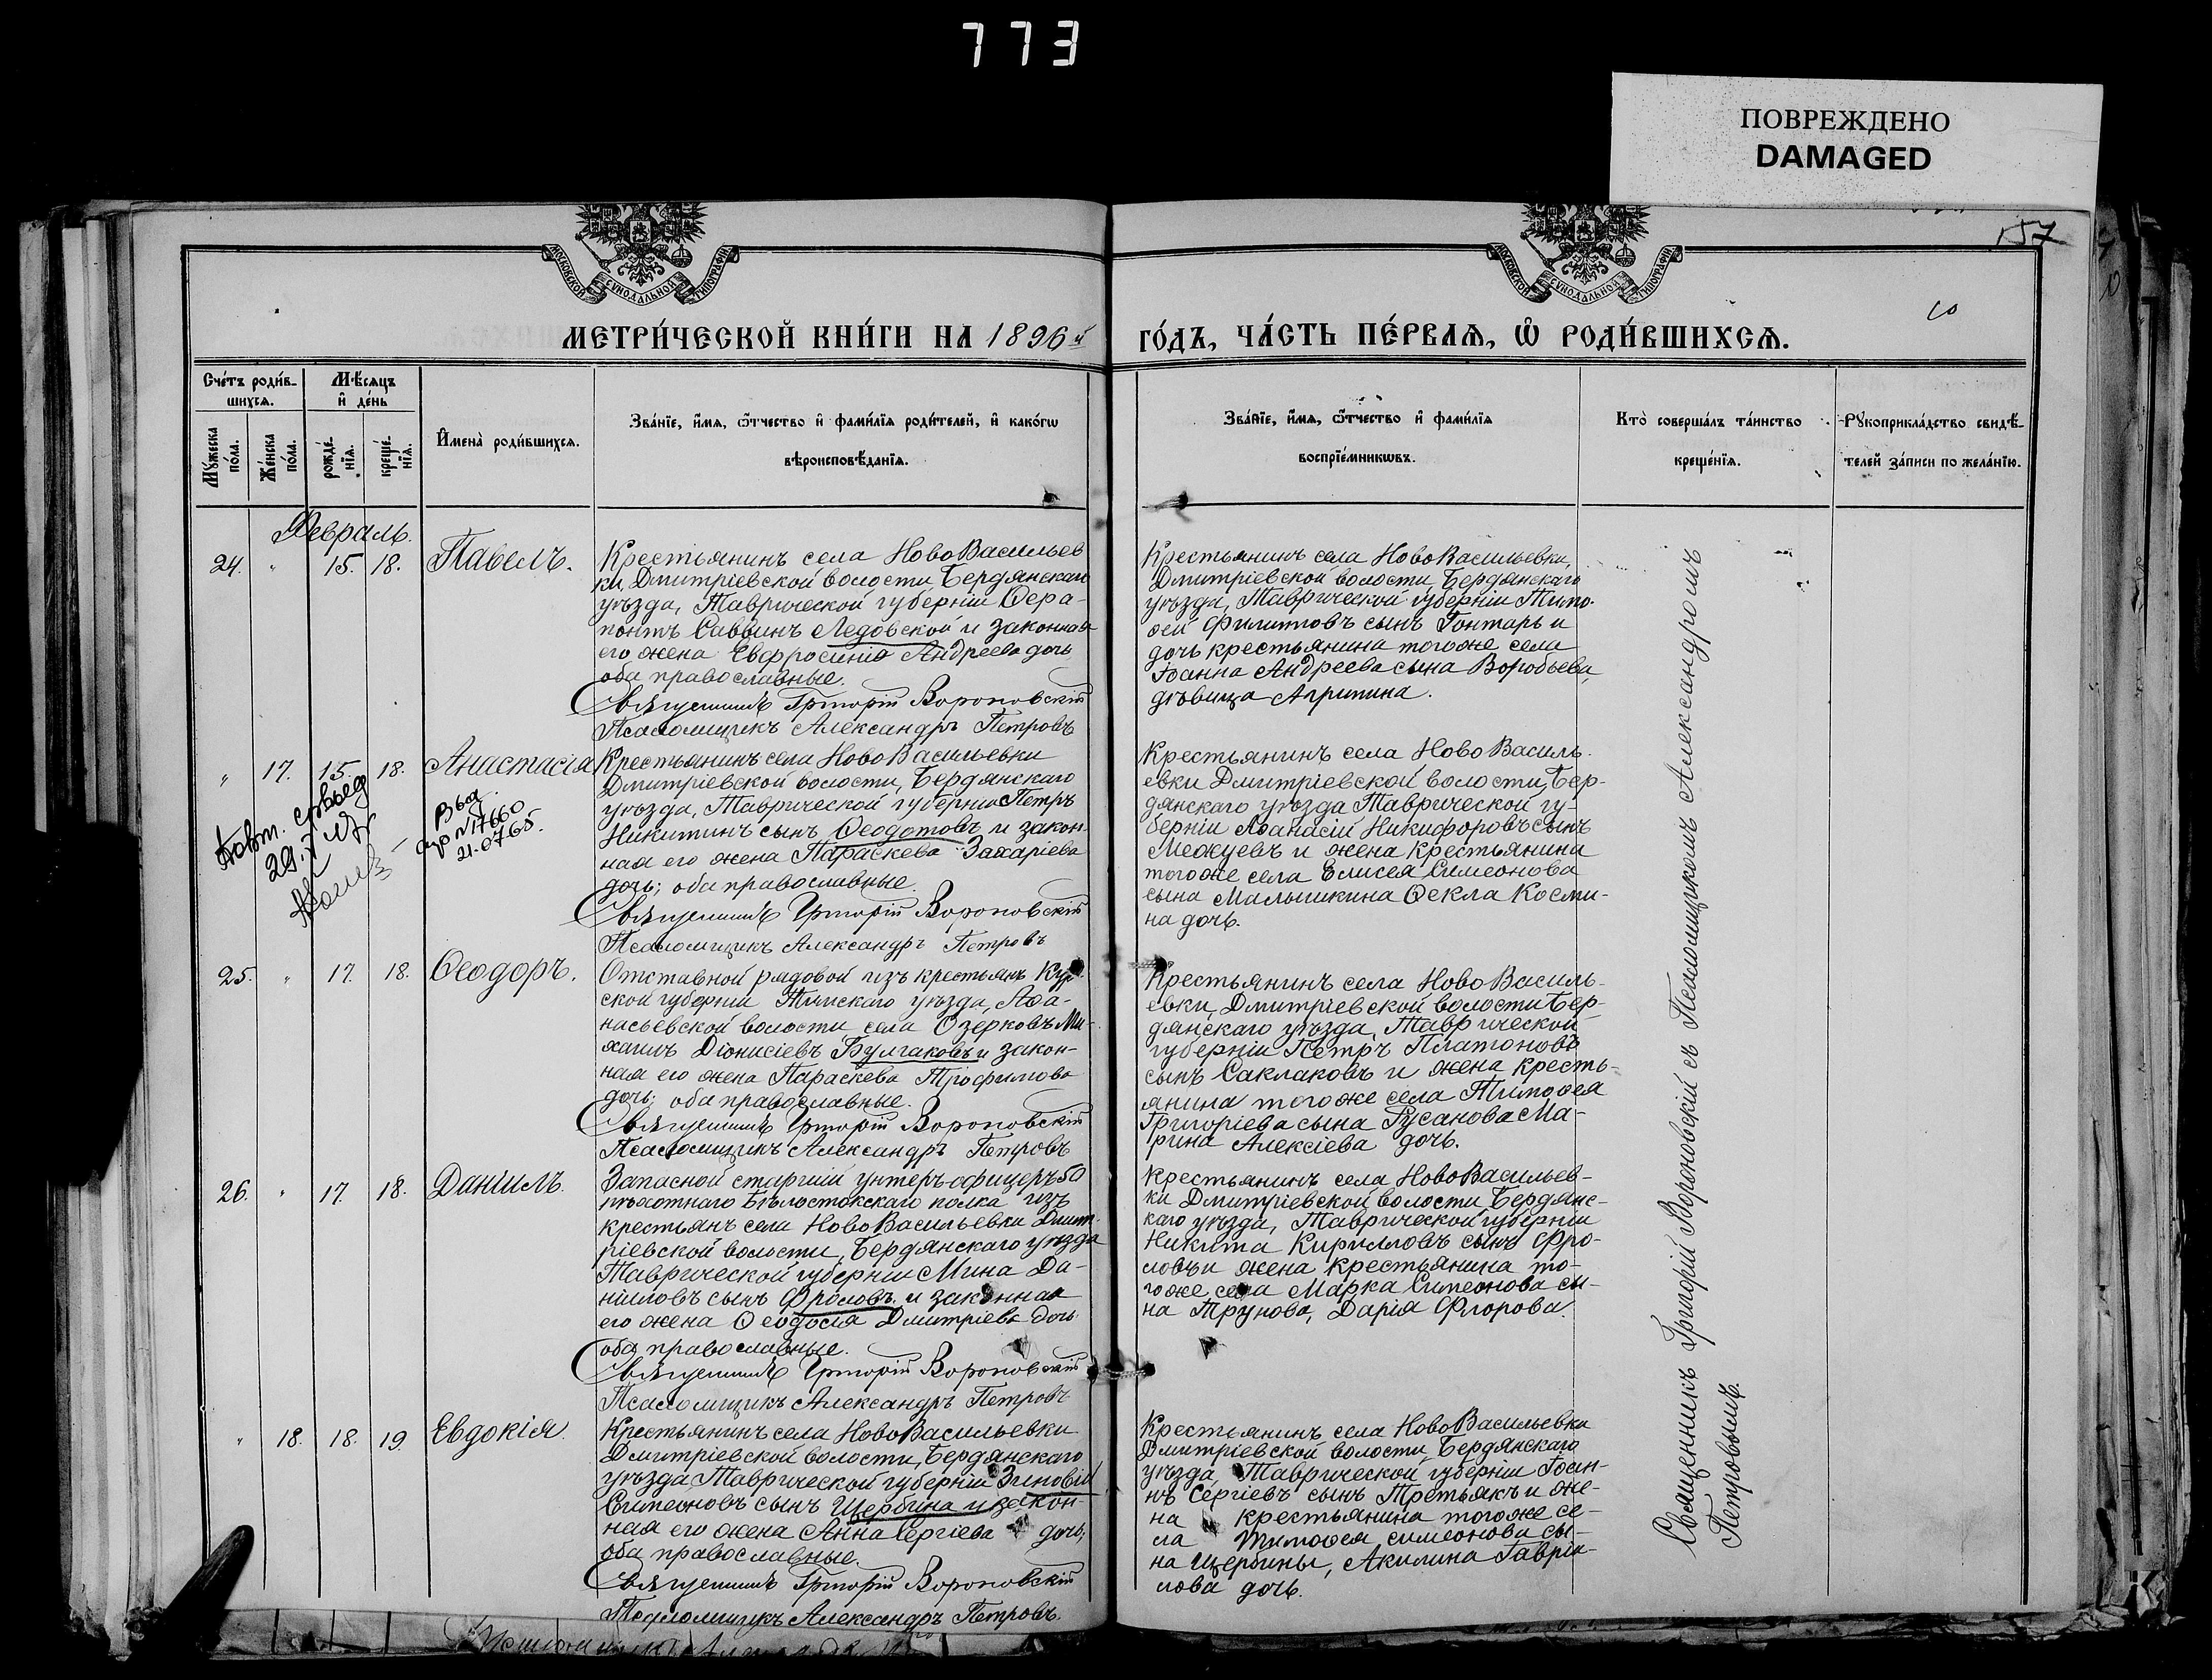 773
ПОВРЕЖДЕНО
DAMAGED
157
10
МОСКОВСКОЙ СУНОДАЛЬНОЙ ТИПОГРАФІИ
МОСКОВСКОЙ СУНОДАЛЬНОЙ ТИПОГРАФІИ
МЕТРИ́ЧЕСКОЙ КНИ́ГИ НА 1896й
ГО́ДЪ, ЧА́СТЬ ПЕ́РВАѦ, Ѡ РОДИ́ВШИХСѦ.
Сче́тъ роди́в-
шихсѧ.
Мѣ́сѧцъ
и де́нь
Мꙋжеска
по́ла.
Же́нска
по́ла.
рожде́-
нїѧ.
креще́-
нїѧ.
Имена̀ роди́вшихсѧ.
Зва́нїе, и́мѧ, ѻ́тчество и фами́лїѧ роди́телей, и како́гѡ
вѣроисповѣ́данїѧ.
Зва́нїе, и́мѧ, ѻ́тчество и фами́лїѧ
воспрїе́мникѡвъ.
Кто̀ соверша́лъ та́инство
креще́нїѧ.
Рꙋкоприкла́дство свидѣ́-
телей за́писи по жела́нїю.
Февраль.
24. " 15. 18. Павелъ.
Крестьянинъ села НовоВасильев
ки, Дмитріевской волости, Бердянскаго
уѣзда, Таврической губерніи Ѳера-
понтъ Саввинъ Ледовской и законная
его жена Евфросинія Андреева дочь
оба православные.
Священникъ Григорій Вороновскій
Псаломщикъ Александръ Петровъ
Крестьянинъ села НовоВасильевки,
Дмитріевской волости, Бердянскаго
уѣзда, Таврической губерніи Тимо-
ѳей Филипповъ сынъ Гонтарь и
дочь крестьянина тогоже села
Іоанна Андреева сына Воробьева,
дѣвица Агрипина.
" 17. 15. 18. Анастасія
Крестьянинъ села НовоВасильевки
Дмитріевской волости, Бердянскаго
уѣзда, Таврической губерніи Петръ
Никитинъ сынъ Ѳеодотовъ и закон-
ная его жена Параскева Захаріева
дочь; оба православные.
Священникъ Григорій Вороновскій
Псаломщикъ Александръ Петровъ
Повт.
29.
№17660
21.07.65.
Крестьянинъ села НовоВасиль-
евки Дмитріевской волости, Бер-
дянскаго уѣзда Таврической гу-
берніи Аѳанасій Никифоровъ сынъ
Межуевъ и жена крестьянина
тогоже села Елисея Симеонова
сына Малышкина Ѳекла Косми-
на дочь.
25. " 17. 18. Ѳеодоръ.
Отставной рядовой изъ крестьянъ Кур-
ской губерніи Тимскаго уѣзда, Аѳа-
насьевской волости села Озерковъ Ми-
хаилъ Діонисіевъ Булгаковъ и закон-
ная его жена Параскева Трофимова
дочь; оба православные.
Священникъ Григорій Вороновскій
Псаломщикъ Александръ Петровъ
Крестьянинъ села НовоВасиль-
евки, Дмитріевской волости Бер-
дянскаго уѣзда, Таврической
губерніи Петръ Платоновъ
сынъ Саклаковъ и жена кресть-
янина тогоже села Тимоѳея
Григоріева сына Русанова Ма-
рина Алексіева дочь.
26. " 17. 18. Даніилъ.
Запасной старшій унтеръ-офицеръ 50
пѣхотнаго Бѣлостокскаго полка изъ
крестьянъ села НовоВасильевки Дмит-
ріевской волости, Бердянскаго уѣзда
Таврической губерніи Мина Да-
ніиловъ сынъ Фроловъ и законная
его жена Ѳеодосія Дмитріева дочь
оба православные.
Священникъ Григорій Вороновскій
Псаломщикъ Александръ Петровъ
Крестьянинъ села НовоВасильев-
ки Дмитріевской волости, Бердянс-
каго уѣзда, Таврической губерніи
Никита Кирилловъ сынъ Фро-
ловъ и жена крестьянина то-
гоже села Марка Симеонова сы-
на Трунова, Дарія Флорова.
" 18. 18. 19. Евдокія.
Крестьянинъ села НовоВасильевки
Дмитріевской волости, Бердянскаго
уѣзда Таврической губерніи Зиновій
Симеоновъ сынъ Щербина и закон-
ная его жена Анна Сергіева дочь,
оба православные.
Священникъ Григорій Вороновскій
Псаломщикъ Александръ Петровъ.
Крестьянинъ села НовоВасильевки
Дмитріевской волости, Бердянскаго
уѣзда, Таврической губерніи Іоан-
нъ Сергіевъ сынъ Третьякъ и же-
на крестьянина тогоже се-
ла Тимоѳея симеонова сы-
на Щербины, Акилина Гаврiи-
лова дочь.
Священникъ Григорій Вороновскій съ Псаломщикомъ Александромъ
Петровымъ.